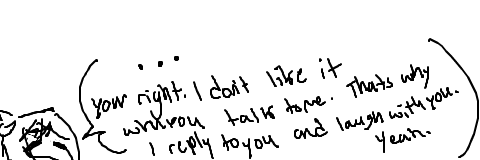 ...
your right. I don't like it
when you talk to me. Thats why
I reply to you and laugh with you.
Yeah.